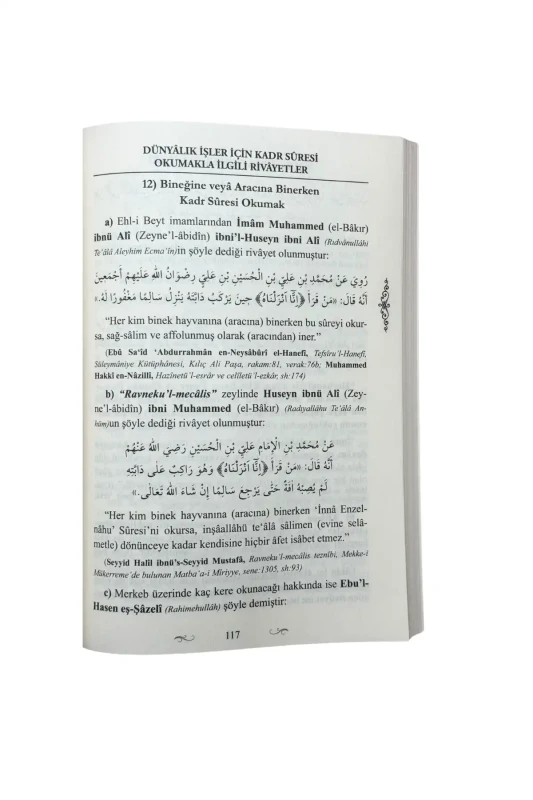 DÜNYÂLIK İŞLER İÇİN KADR SÛRESİ
OKUMAKLA İLGİLİ RİVÂYETLER
12) Bineğine veyâ Aracına Binerken
Kadr Sûresi Okumak
a) Ehl-i Beyt imamlarından İmâm Muhammed (el-Bâkır)
ibnü Alî (Zeyne'l-âbidîn) ibni'l-Huseyn ibni Alî (Rıdvânullâhi
Te'âlâ Aleyhim Ecma'în)in şöyle dediği rivâyet olunmuştur:
رُوِيَ عَنْ مُحَمَّدِ بْنِ عَلِيِّ بْنِ الْحُسَيْنِ بْنِ عَلِيٍّ رِضْوَانُ اللهِ عَلَيْهِمْ أَجْمَعِينَ
أَنَّهُ قَالَ: «مَنْ قَرَأَ ﴿إِنَّا أَنْزَلْنَاهُ﴾ حِينَ يَرْكَبُ دَابَّتَهُ يَنْزِلُ سَالِمًا مَغْفُورًا لَهُ.»
"Her kim binek hayvanına (aracına) binerken bu sûreyi okur-
sa, sağ-sâlim ve affolunmuş olarak (aracından) iner."
(Ebû Sa'îd 'Abdurrahmân en-Neysâbûrî el-Hanefî, Tefsîru'l-Hanefî,
Süleymâniye Kütüphânesi, Kılıç Ali Paşa, rakam:81, verak:76b; Muhammed
Hakkî en-Nâzillî, Hazînetü'l-esrâr ve celîletü'l-ezkâr, sh:174)
b) "Ravneku'l-mecâlis" zeylinde Huseyn ibnü Alî (Zey-
ne'l-âbidîn) ibni Muhammed (el-Bâkır) (Radıyallâhu Te'âlâ An-
hüm)ün şöyle dediği rivâyet olunmuştur:
عَنْ مُحَمَّدِ بْنِ الْإِمَامِ عَلِيِّ بْنِ الْحُسَيْنِ رَضِيَ اللهُ عَنْهُمْ
أَنَّهُ قَالَ: «مَنْ قَرَأَ ﴿إِنَّا أَنْزَلْنَاهُ﴾ وَهُوَ رَاكِبٌ عَلَى دَابَّتِهِ
لَمْ يُصِبْهُ آفَةٌ حَتَّى يَرْجِعَ سَالِمًا إِنْ شَاءَ اللهُ تَعَالَى.»
"Her kim binek hayvanına (aracına) binerken 'İnnâ Enzel-
nâhu' Sûresi'ni okursa, inşâallâhü te'âlâ sâlimen (evine selâ-
metle) dönünceye kadar kendisine hiçbir âfet isâbet etmez."
(Seyyid Halîl ibnü's-Seyyid Mustafâ, Ravneku'l-mecâlis teznîbi, Mekke-i
Mükerreme'de bulunan Matba'a-i Mîriyye, sene:1305, sh:93)
c) Merkeb üzerinde kaç kere okunacağı hakkında ise Ebu'l-
Hasen eş-Şâzelî (Rahimehullâh) şöyle demiştir:
117